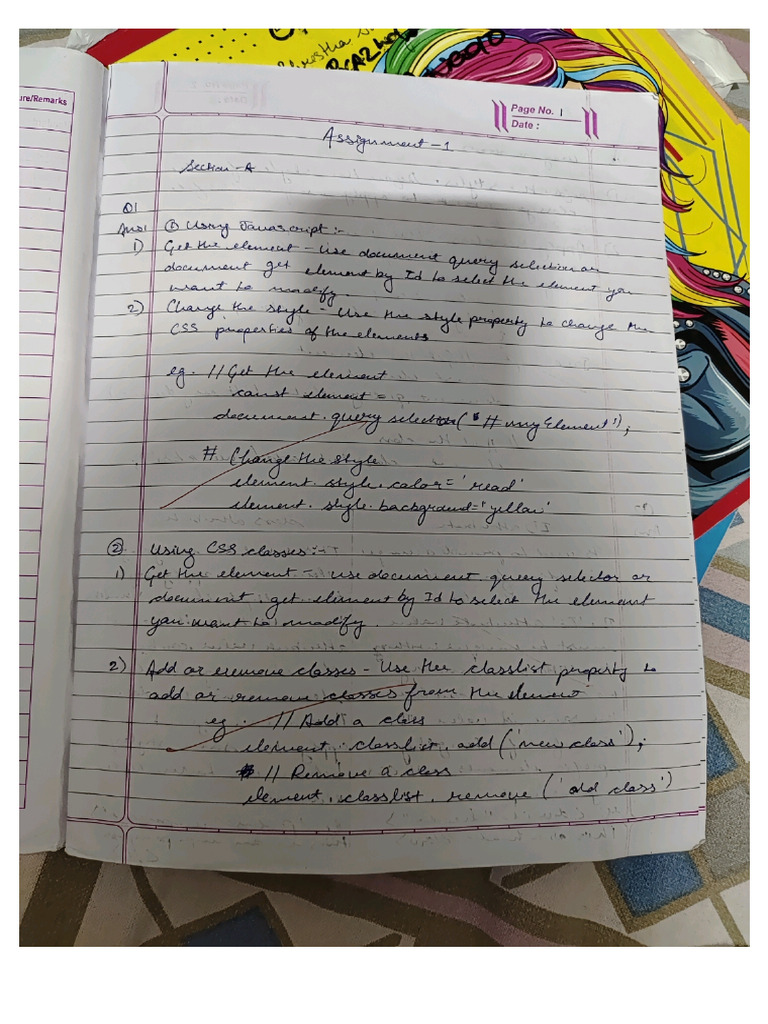 ure/Remarks
Page No. 1
Date :
Assignment -1
Section -A
Q1
Ans1 ① Using Javascript :-
1) Get the element - Use document query selection or
document get element by Id to select the element you
want to modify.
2) Change the style - Use the style property to change the
CSS properties of the elements
eg. // Get the element
const element =
document.query selector("#myElement');
# Change the style
element.style.color='read'
element.style.background='yellow'
② Using CSS classes :-
1) Get the element - use document query selector or
document.get element by Id to select the element
you want to modify.
2) Add or remove classes - Use the classlist property to
add or remove classes from the element
eg. // Add a class
element.classlist.add('new class');
// Remove a class
element.classlist.remove('old class')